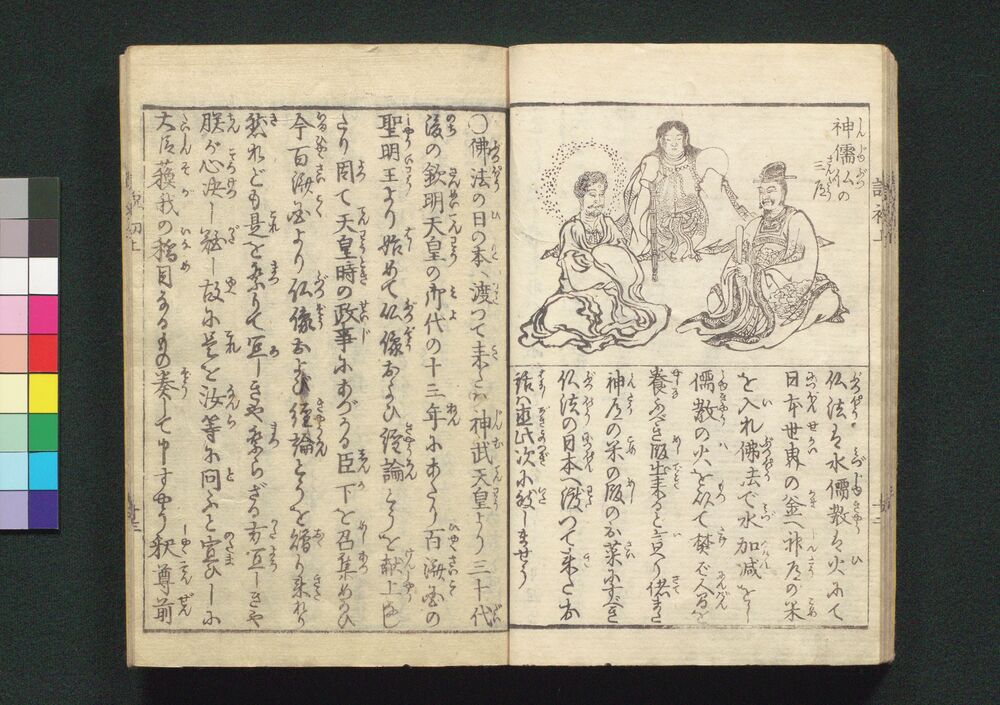 神儒仏の
三道
仏法は水儒教は火にて
日本世界の釜へ神道の米
を入れ佛法で水加減をし
儒教の火を以て焚で人間を
養ふべき飯出来ると言り偖また
神道の米の飯のお菜にすべき
仏法の日本へ渡つて来たお
話は直此次に致しませう
○佛法の日の本へ渡つて来たは神武天皇より三十代
後の欽明天皇の御代の十三年にあたり百済国の
聖明王より始めて仏像および経論とうを献上し
たり因て天皇時の政事にあづかる臣下を召集めのひ
今百済国より仏像および経論とうを贈り来れり
然れども是を祭りて宜しきや祭らざる方宜しきや
朕が心決し難し故に是を汝等に问ふと宣ひしに
大臣蘓我の稲目なるもの奏して申すやう釈尊前